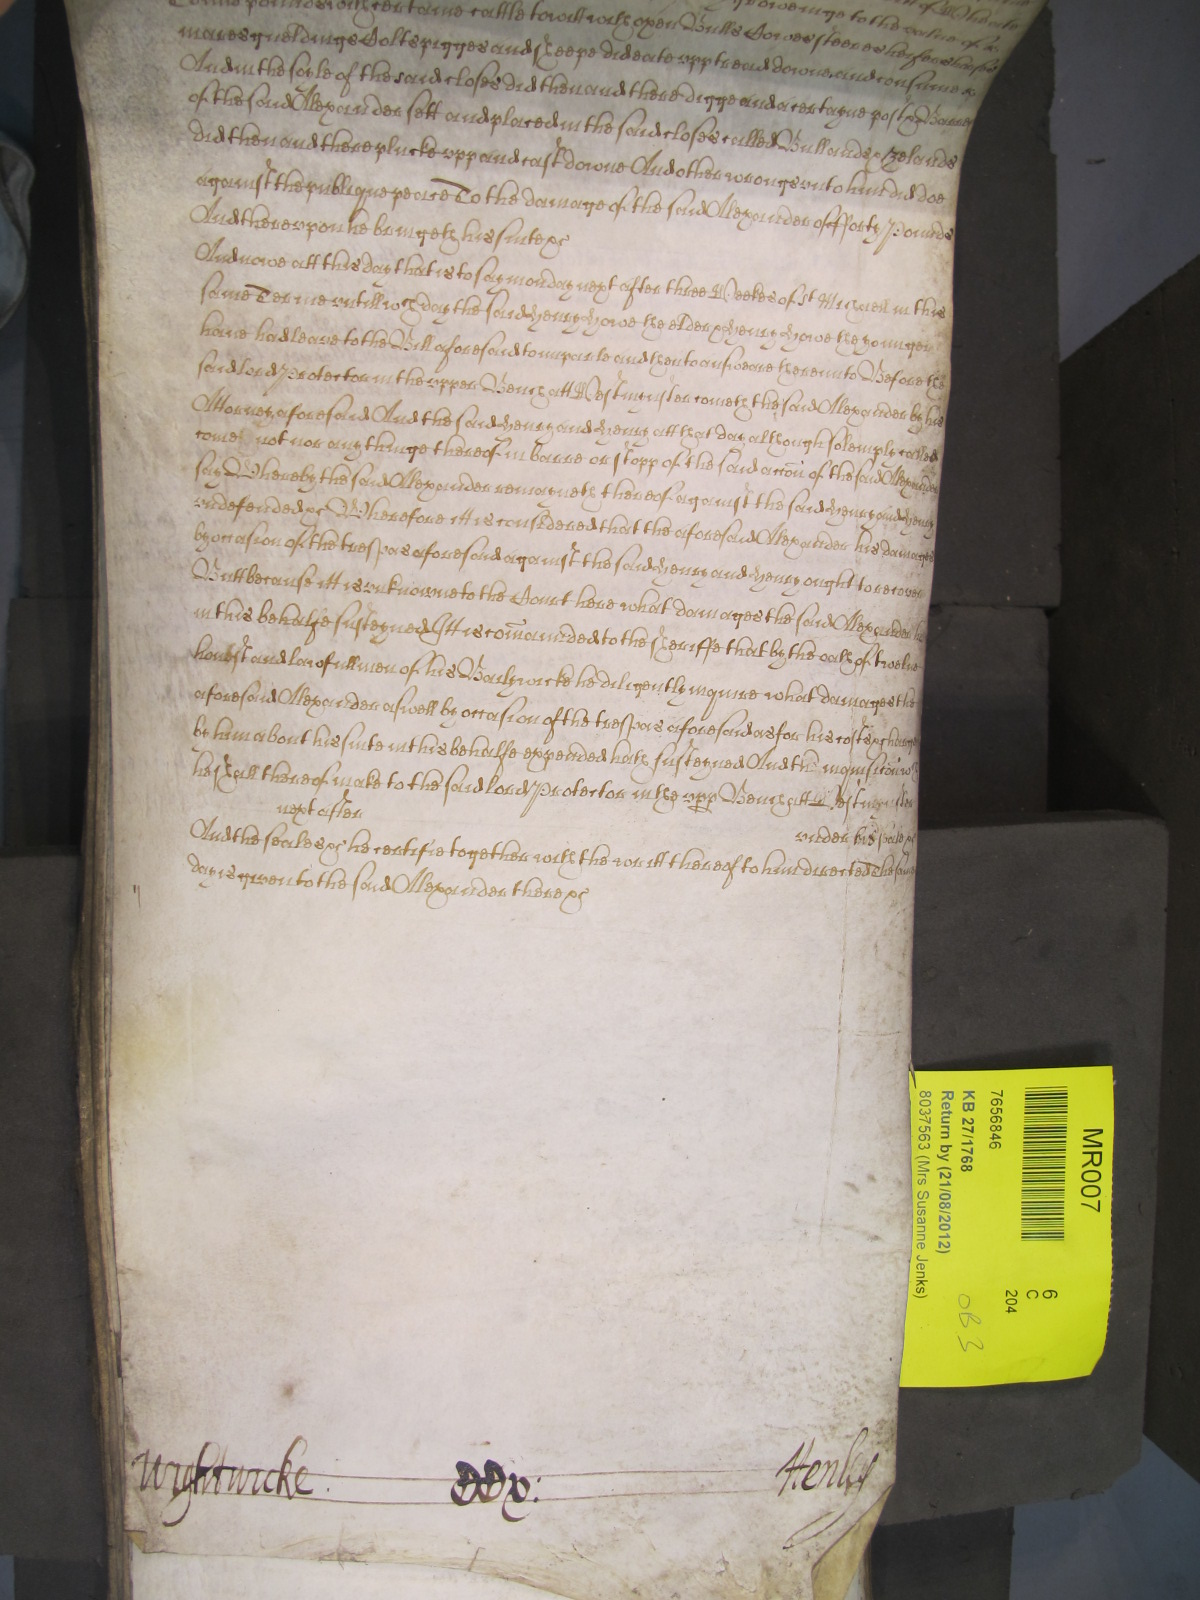 pounds with certaine cattle to witt with oxen Bulls Cowes steeres heifers horses
mares gueldings Colts pigges and sheepe did eate upp tread downe and consume &
And in the soile of the said closes did then and there digge and a certayne post & Barre
of the said Alexander sett and placed in the said closes called Bullands
did then and there plucke upp and cast downe And other wrongs unto him did doe
against the publique peace To the damage of the said Alexander of fforty Pounds
And thereupon he bringeth his suite &c
And nowe att this day that is to say monday next after three Weekes of St Michaell in this
same Terme untill wch day the said Henry Howe the elder & Henry Howe the younger
have had leave to the Bill aforesaid to imparle and then to answeare thereunto Before the
said lord Protector in the upper Bench att Westminster cometh the said Alexander by his
Attorney aforesaid And the said Henry and Henry att that day although solemply called
come not nor any thinge thereof in barre or stopp of the said accon of the said Alexander
say Whereby the said Alexander remayneth thereof against the said Henry and Henry
undefended &c Wherefore itt is considered that the aforesaid Alexander his damages
by occasion of the trespas aforesaid against the said Henry and Henry ought to recover
Butt because itt is unknowne to the Court here what damages the said Alexander
in this behalfe susteyned Itt is comanded to the Sheriffe that by the oath of twelve
honest and lawfull men of his Baylywicke he diligently inquire what damages the
aforesaid Alexander aswell by occasion of the trespas aforesaid as for his costs & charges
by him about his suite in this behalfe expended hath susteyned And the inquisicon wch
he shall thereof make to the said lord Protector in the upp Bench att Westminster
next after under his seale &c
And the seales &c he certifie together with the writt thereof to him directed The same
day is given to the said Alexander there &c
Wightwicke. Henley
MR007
6
C
204
7656846
KB 27/1768
Return by (21/08/2012)
8037563 (Mrs Susanne Jenks)
OB 3